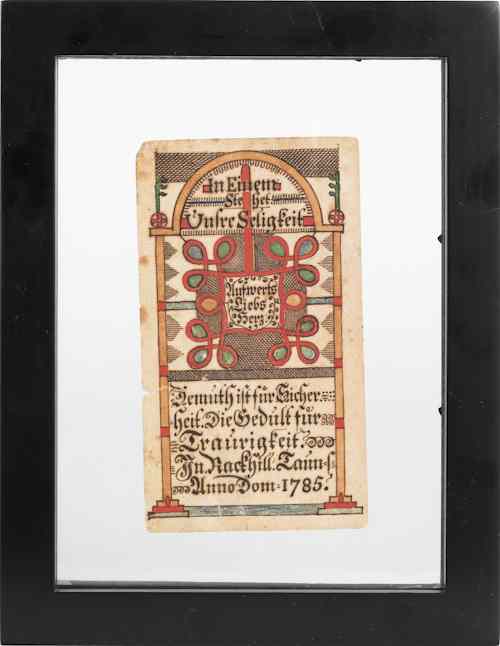 In Einem
Ste het
Unsre Seligkeit
Aufwerts
Liebs
Herz
Demuth ist für Sicher
heit. Die Gedult für
Traurigkeit.
In Rackhill. Taun
Anno Dom 1785.